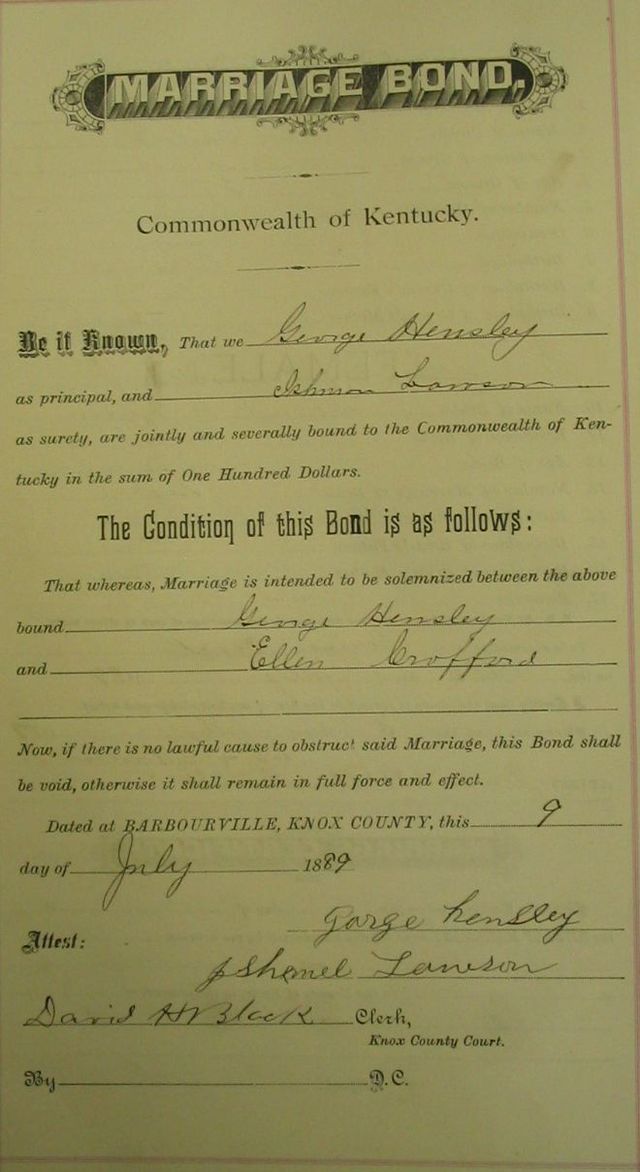 MARRIAGE BOND,
Commonwealth of Kentucky.
Be it Known, That we George Hensley
as principal, and Ishmon Lawson
as surety, are jointly and severally bound to the Commonwealth of Ken-
tucky in the sum of One Hundred Dollars.
The Condition of this Bond is as follows:
That whereas, Marriage is intended to be solemnized between the above
bound George Hensley
and Ellen Crofford
Now, if there is no lawful cause to obstruct said Marriage, this Bond shall
be void, otherwise it shall remain in full force and effect.
Dated at BARBOURVILLE, KNOX COUNTY, this 9
day of July 1889
gorge hensley
Attest:
jshmel Lawson
David H Black Clerk,
Knox County Court.
By D.C.